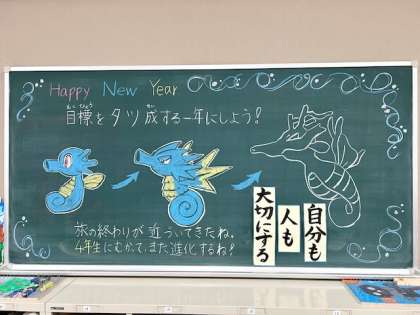 Happy New Year
もくひょう
目標をタツ成する一年にしよう!
せい
旅の終わりが近づいてきたね。
4年生にむかって、また進化するね!
自分も
人も
大切にする